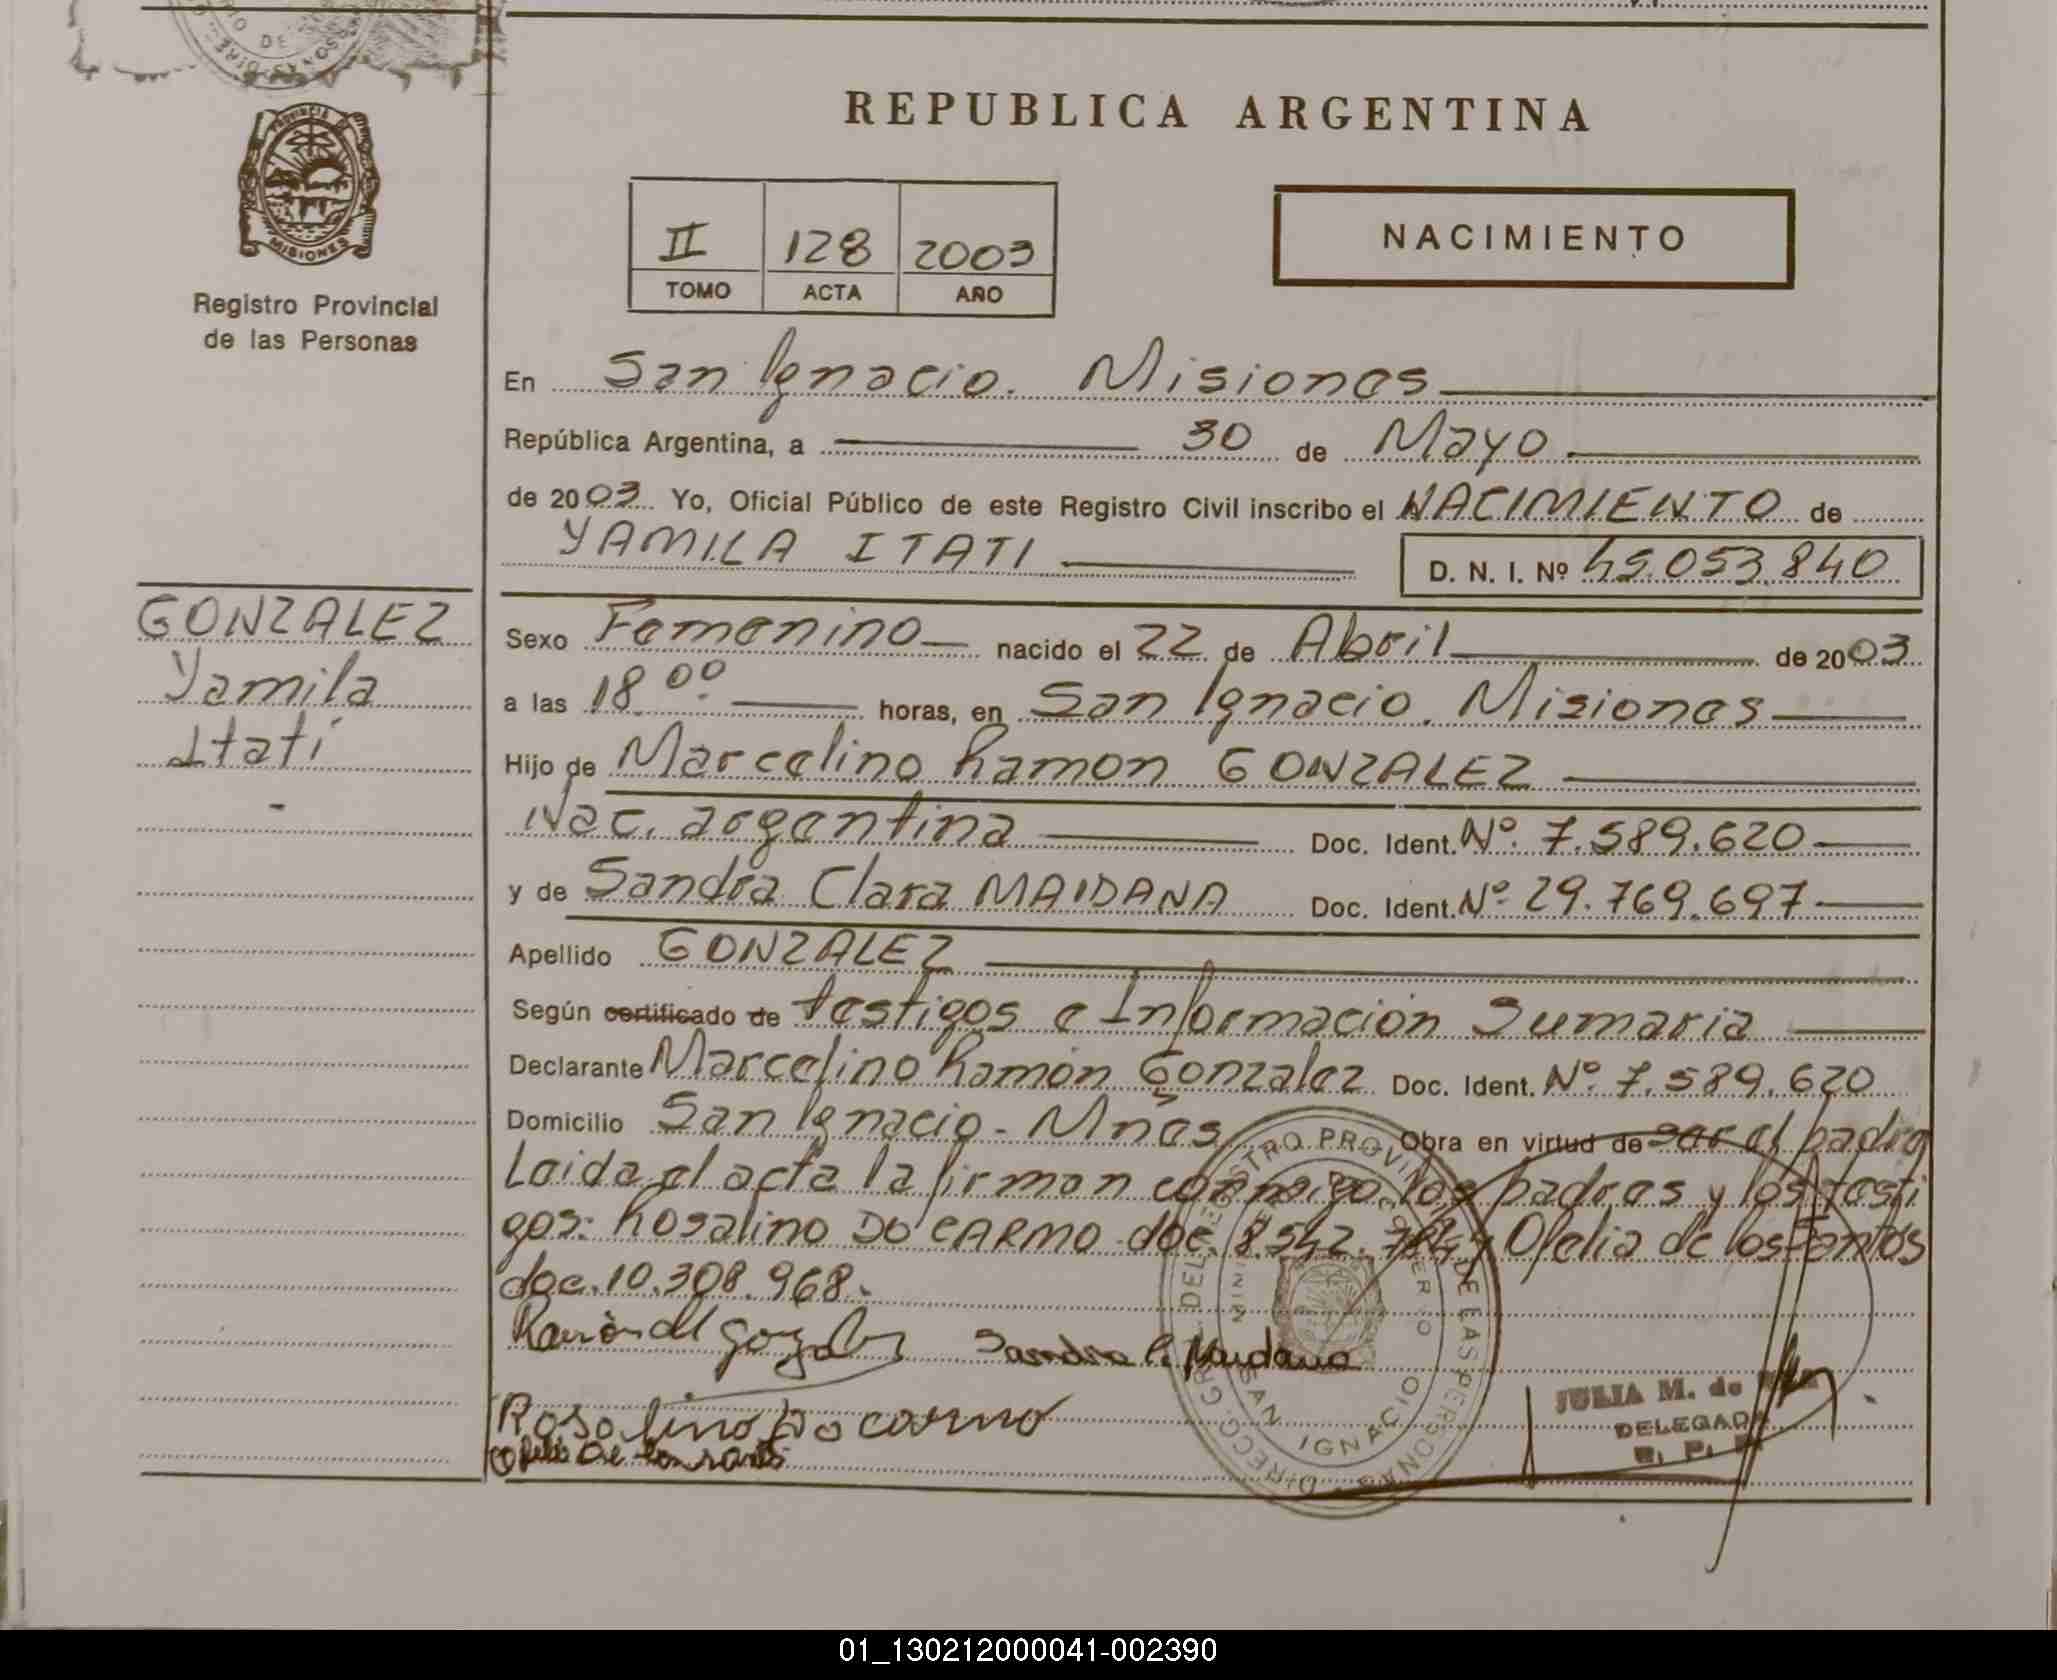 REPUBLICA ARGENTINA
PROVINCIA DE
MISIONES
Registro Provincial
de las Personas
II 128 2003
TOMO ACTA AÑO
NACIMIENTO
En San Ignacio. Misiones
República Argentina, a 30 de Mayo
de 2003 Yo, Oficial Público de este Registro Civil inscribo el NACIMIENTO de
YAMILA ITATI D. N. I. Nº 45.053.840
GONZALEZ
Yamila
Itatí
-
Sexo Femenino nacido el 22 de Abril de 2003
a las 18.00 horas, en San Ignacio. Misiones
Hijo de Marcelino Ramon GONZALEZ
Nac. argentina Doc. Ident. Nº. 7.589.620
y de Sandra Clara MAIDANA Doc. Ident. Nº 29.769.697
Apellido GONZALEZ
Según certificado de testigos e Información Sumaria
Declarante Marcelino Ramón Gonzalez Doc. Ident. Nº. 7.589.620
Domicilio San Ignacio - Mnes Obra en virtud de ser el padre
Leida el acta la firman conmigo los padres y los testi
gos: Rosalino DO CARMO doc. 8.542. y Ofelia de los Santos
doc. 10.308.968.
Ramón M Gonzalez Sandra C. Maidana
Rosalino Do carmo
Ofelia De los santos
JULIA M. de
DELEGADA
R. P. P.
SAN IGNACIO
01_130212000041-002390